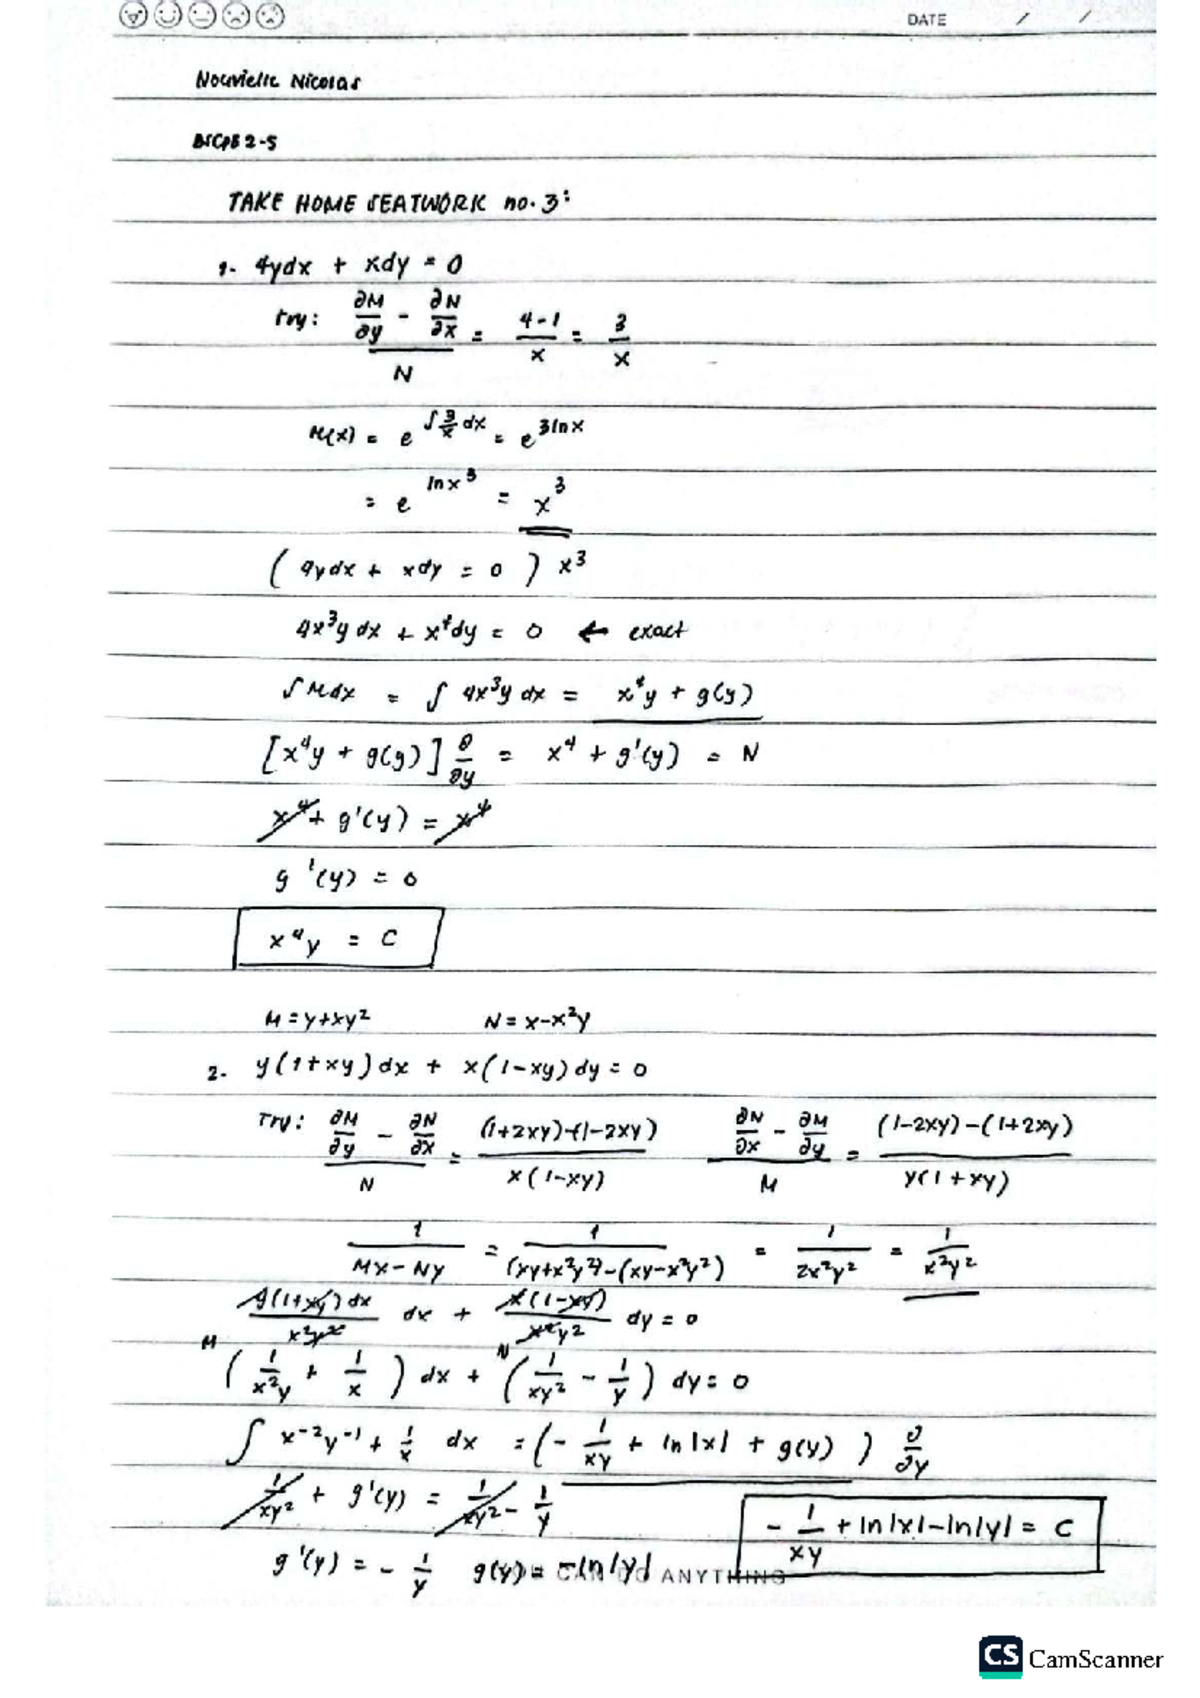 DATE / /
Nouvielle Nicolas
BSCPE 2-5
TAKE HOME SEATWORK no. 3:
1. 4ydx + xdy = 0
try: (∂M/∂y - ∂N/∂x)/N = (4-1)/x = 3/x
M(x) = e^∫3/x dx = e^3lnx
= e^lnx^3 = x^3
( 4ydx + xdy = 0 ) x^3
4x^3y dx + x^4dy = 0 ← exact
∫Mdx = ∫ 4x^3y dx = x^4y + g(y)
[x^4y + g(y)] ∂/∂y = x^4 + g'(y) = N
x^4 + g'(y) = x^4
g'(y) = 0
x^4y = C
M = y+xy^2 N = x-x^2y
2. y(1+xy)dx + x(1-xy)dy = 0
Try: (∂M/∂y - ∂N/∂x)/N = ((1+2xy)-(1-2xy))/(x(1-xy)) (∂N/∂x - ∂M/∂y)/M = ((1-2xy)-(1+2xy))/(y(1+xy))
1/(Mx-Ny) = 1/((xy+x^2y^2)-(xy-x^2y^2)) = 1/(2x^2y^2) = 1/(x^2y^2)
(y(1+xy)dx)/(x^2y^2) dx + (x(1-xy))/(x^2y^2) dy = 0
M N
(1/(x^2y) + 1/x) dx + (1/(xy^2) - 1/y) dy = 0
∫ x^-2y^-1 + 1/x dx = (-1/(xy) + ln|x| + g(y)) ∂/∂y
1/(xy^2) + g'(y) = 1/(xy^2) - 1/y
-1/(xy) + ln|x| - ln|y| = C
g'(y) = -1/y g(y) = -ln|y|
CAN DO ANYTHING
CS CamScanner